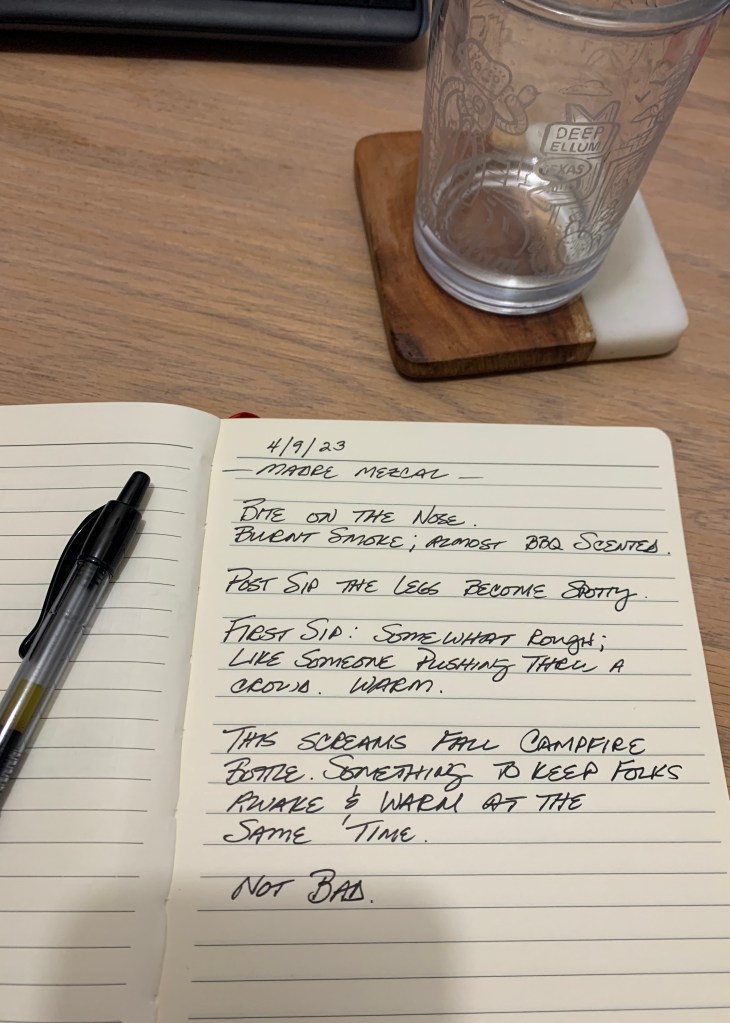 DEEP
ELLUM
TEXAS
4/9/23
— MADRE MEZCAL —
BITE ON THE NOSE.
BURNT SMOKE; ALMOST BBQ SCENTED.
POST SIP THE LEGS BECOME SPOTTY.
FIRST SIP: SOMEWHAT ROUGH;
LIKE SOMEONE PUSHING THRU A
CROWD. WARM.
THIS SCREAMS FALL CAMPFIRE
BOTTLE. SOMETHING TO KEEP FOLKS
AWAKE & WARM AT THE
SAME TIME.
NOT BAD.